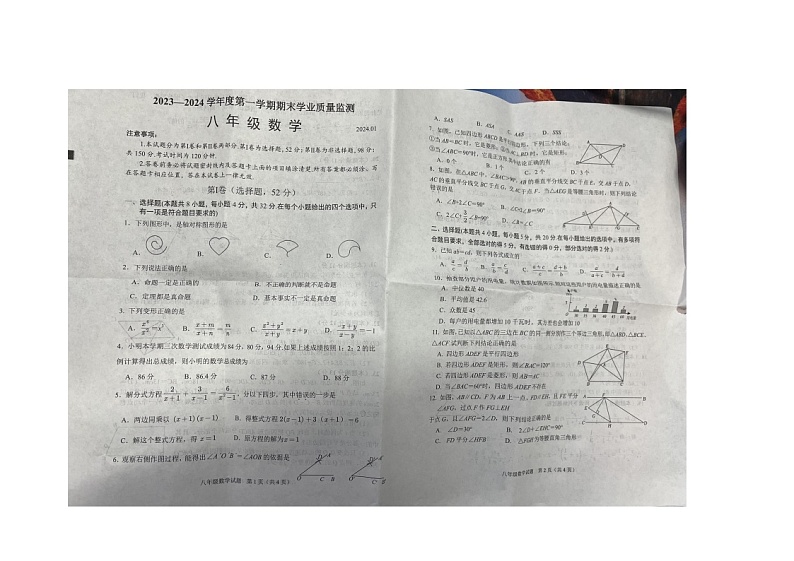 2023—2024学年度第一学期期末学业质量监测
八年级数学
2024.01
注意事项：
1.本试题分为第Ⅰ卷和第Ⅱ卷两部分.第Ⅰ卷为选择题，52分；第Ⅱ卷为非选择题，98分；
共150分.考试时间为120分钟.
2.答卷前务必将试题密封线内及答题卡上面的项目填涂清楚.所有答案都必须涂、写
在答题卡相应位置，答在本试卷上一律无效.
第Ⅰ卷（选择题，52分）
一、选择题(本题共8小题，每小题4分，共32分.在每个小题给出的四个选项中，只
有一项是符合题目要求的)
1．下列图形中，是轴对称图形的是
A． B． C． D．
2．下列说法正确的是
A．命题一定是正确的 B．不正确的判断就不是命题
C．定理都是真命题 D．基本事实不一定是真命题
3．下列变形正确的是
A．x⁶/x²=x³ B．(x+m)/(x+n)=m/n C．(x²+y²)/(x+y)=x+y D．(-x+y)/(x-y)=-1
4．小明本学期三次数学测试成绩为84分，80分，94分.如果上述成绩按照1：2：2的比
例计算得出总成绩，则小明的数学总成绩为
A．86分 B．86.4分 C．87分 D．88分
5．解分式方程2/(x+1)+3/(x-1)=6/(x²-1)，分以下四步，其中错误的一步是
A．两边同乘以(x+1)(x-1) B．得整式方程2(x-1)+3(x+1)=6
C．解这个整式方程，得x=1 D．原方程的解为x=1
6．观察右侧作图过程，能得出∠A′O′B′=∠AOB的依据是
八年级数学试题 第1页（共4页）
A．SAS B．ASA C．AAS D．SSS
7．如图，已知四边形ABCD是平行四边形，下列三个结论：
①当AB=BC时，它是菱形，②当AC⊥BD时，它是矩形，
③当∠ABC=90°时，它是正方形.其中结论正确的有
A．0个 B．1个 C．2个 D．3个
8．如图，在△ABC中，∠BAC>90°，AB的垂直平分线交BC于点E，交AB于点D，
AC的垂直平分线交BC于点G，交AC于点F．当△AEG是等腰三角形时，则下列结论
错误的是
A．∠B+2∠C=90° B．∠C+∠B=90°
C．2∠C+3/2∠B=90° D．∠B=∠C
二、选择题(本题共4小题，每小题5分，共20分.在每小题给出的选项中，有多项符
合题目要求，全部选对的得5分，有选错的得0分，部分选对的得2分.)
9．已知ab=cd，则下列各式成立的
10．抽查部分用户的用电量，
A．中位数是40
B．平均数是42.6
C．众数是45
D．每户的用电量都增加10千瓦时，其方差也会增加10
11．如图，已知以△ABC的三边在BC的同一侧分别作三个等边三角形，即△ABD，△BCE，
△ACF.试判断下列结论正确的是
A．四边形ADEF是平行四边形
B．若四边形ADEF是矩形，则∠BAC=120°
C．若四边形ADEF是菱形，则AB=AC
D．当∠BAC=60°时，四边形ADEF不存在
12．如图，AB∥CD，F为AB上一点，FD∥EH，且FE平分
∠AFG，过点F作FG⊥EH
于点G，且∠AFG=2∠D，则下列结论正确的是
A．∠D=30° B．2∠D+∠EHC=90°
C．FD平分∠HFB D．△FGH为等腰直角三角形
八年级数学试题 第2页（共4页）